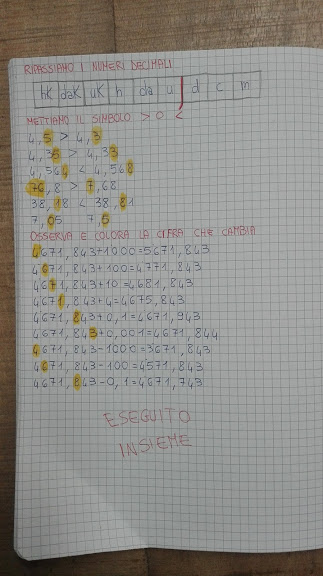 RIPASSIAMO I NUMERI DECIMALI
hK daK uK h da u d c m
METTIAMO IL SIMBOLO > O <
4,5 > 4,3
4,35 > 4,33
4,564 < 4,568
76,8 > 7,68
38,18 < 38,81
7,05 7,5
OSSERVA E COLORA LA CIFRA CHE CAMBIA
4671,843+1000=5671,843
4671,843+100=4771,843
4671,843+10=4681,843
4671,843+4=4675,843
4671,843+0,1=4671,943
4671,843+0,001=4671,844
4671,843-1000=3671,843
4671,843-100=4571,843
4671,843-0,1=4671,743
ESEGUITO
INSIEME